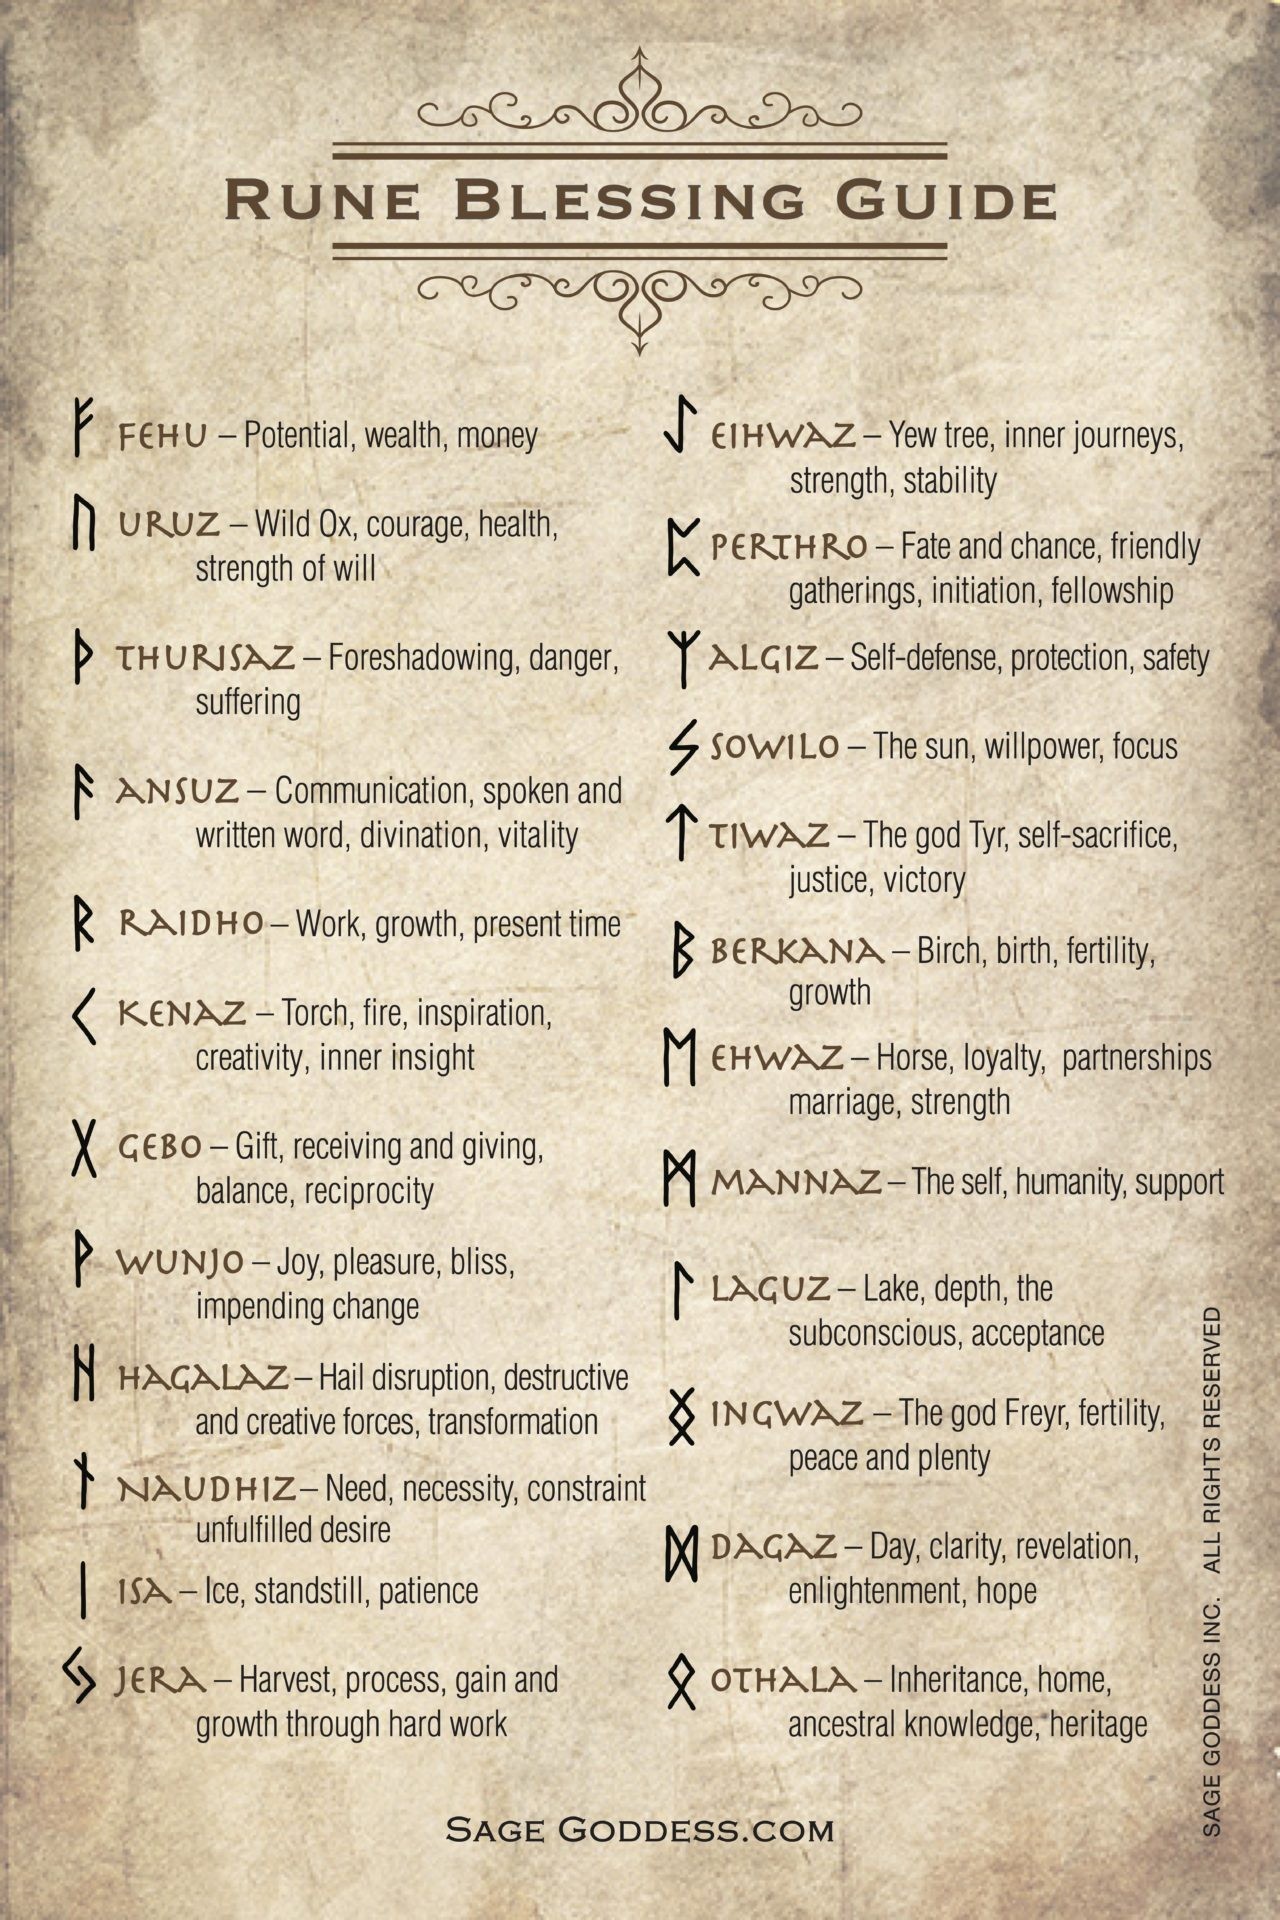 RUNE BLESSING GUIDE
ᚠ FEHU – Potential, wealth, money
ᚢ URUZ – Wild Ox, courage, health,
strength of will
ᚦ THURISAZ – Foreshadowing, danger,
suffering
ᚨ ANSUZ – Communication, spoken and
written word, divination, vitality
ᚱ RAIDHO – Work, growth, present time
ᚲ KENAZ – Torch, fire, inspiration,
creativity, inner insight
ᚷ GEBO – Gift, receiving and giving,
balance, reciprocity
ᚹ WUNJO – Joy, pleasure, bliss,
impending change
ᚺ HAGALAZ – Hail disruption, destructive
and creative forces, transformation
ᚾ NAUDHIZ – Need, necessity, constraint
unfulfilled desire
ᛁ ISA – Ice, standstill, patience
ᛃ JERA – Harvest, process, gain and
growth through hard work
ᛇ EIHWAZ – Yew tree, inner journeys,
strength, stability
ᛈ PERTHRO – Fate and chance, friendly
gatherings, initiation, fellowship
ᛉ ALGIZ – Self-defense, protection, safety
ᛊ SOWILO – The sun, willpower, focus
ᛏ TIWAZ – The god Tyr, self-sacrifice,
justice, victory
ᛒ BERKANA – Birch, birth, fertility,
growth
ᛖ EHWAZ – Horse, loyalty, partnerships
marriage, strength
ᛗ MANNAZ – The self, humanity, support
ᛚ LAGUZ – Lake, depth, the
subconscious, acceptance
ᛝ INGWAZ – The god Freyr, fertility,
peace and plenty
ᛞ DAGAZ – Day, clarity, revelation,
enlightenment, hope
ᛟ OTHALA – Inheritance, home,
ancestral knowledge, heritage
SAGE GODDESS.COM
SAGE GODDESS INC. ALL RIGHTS RESERVED